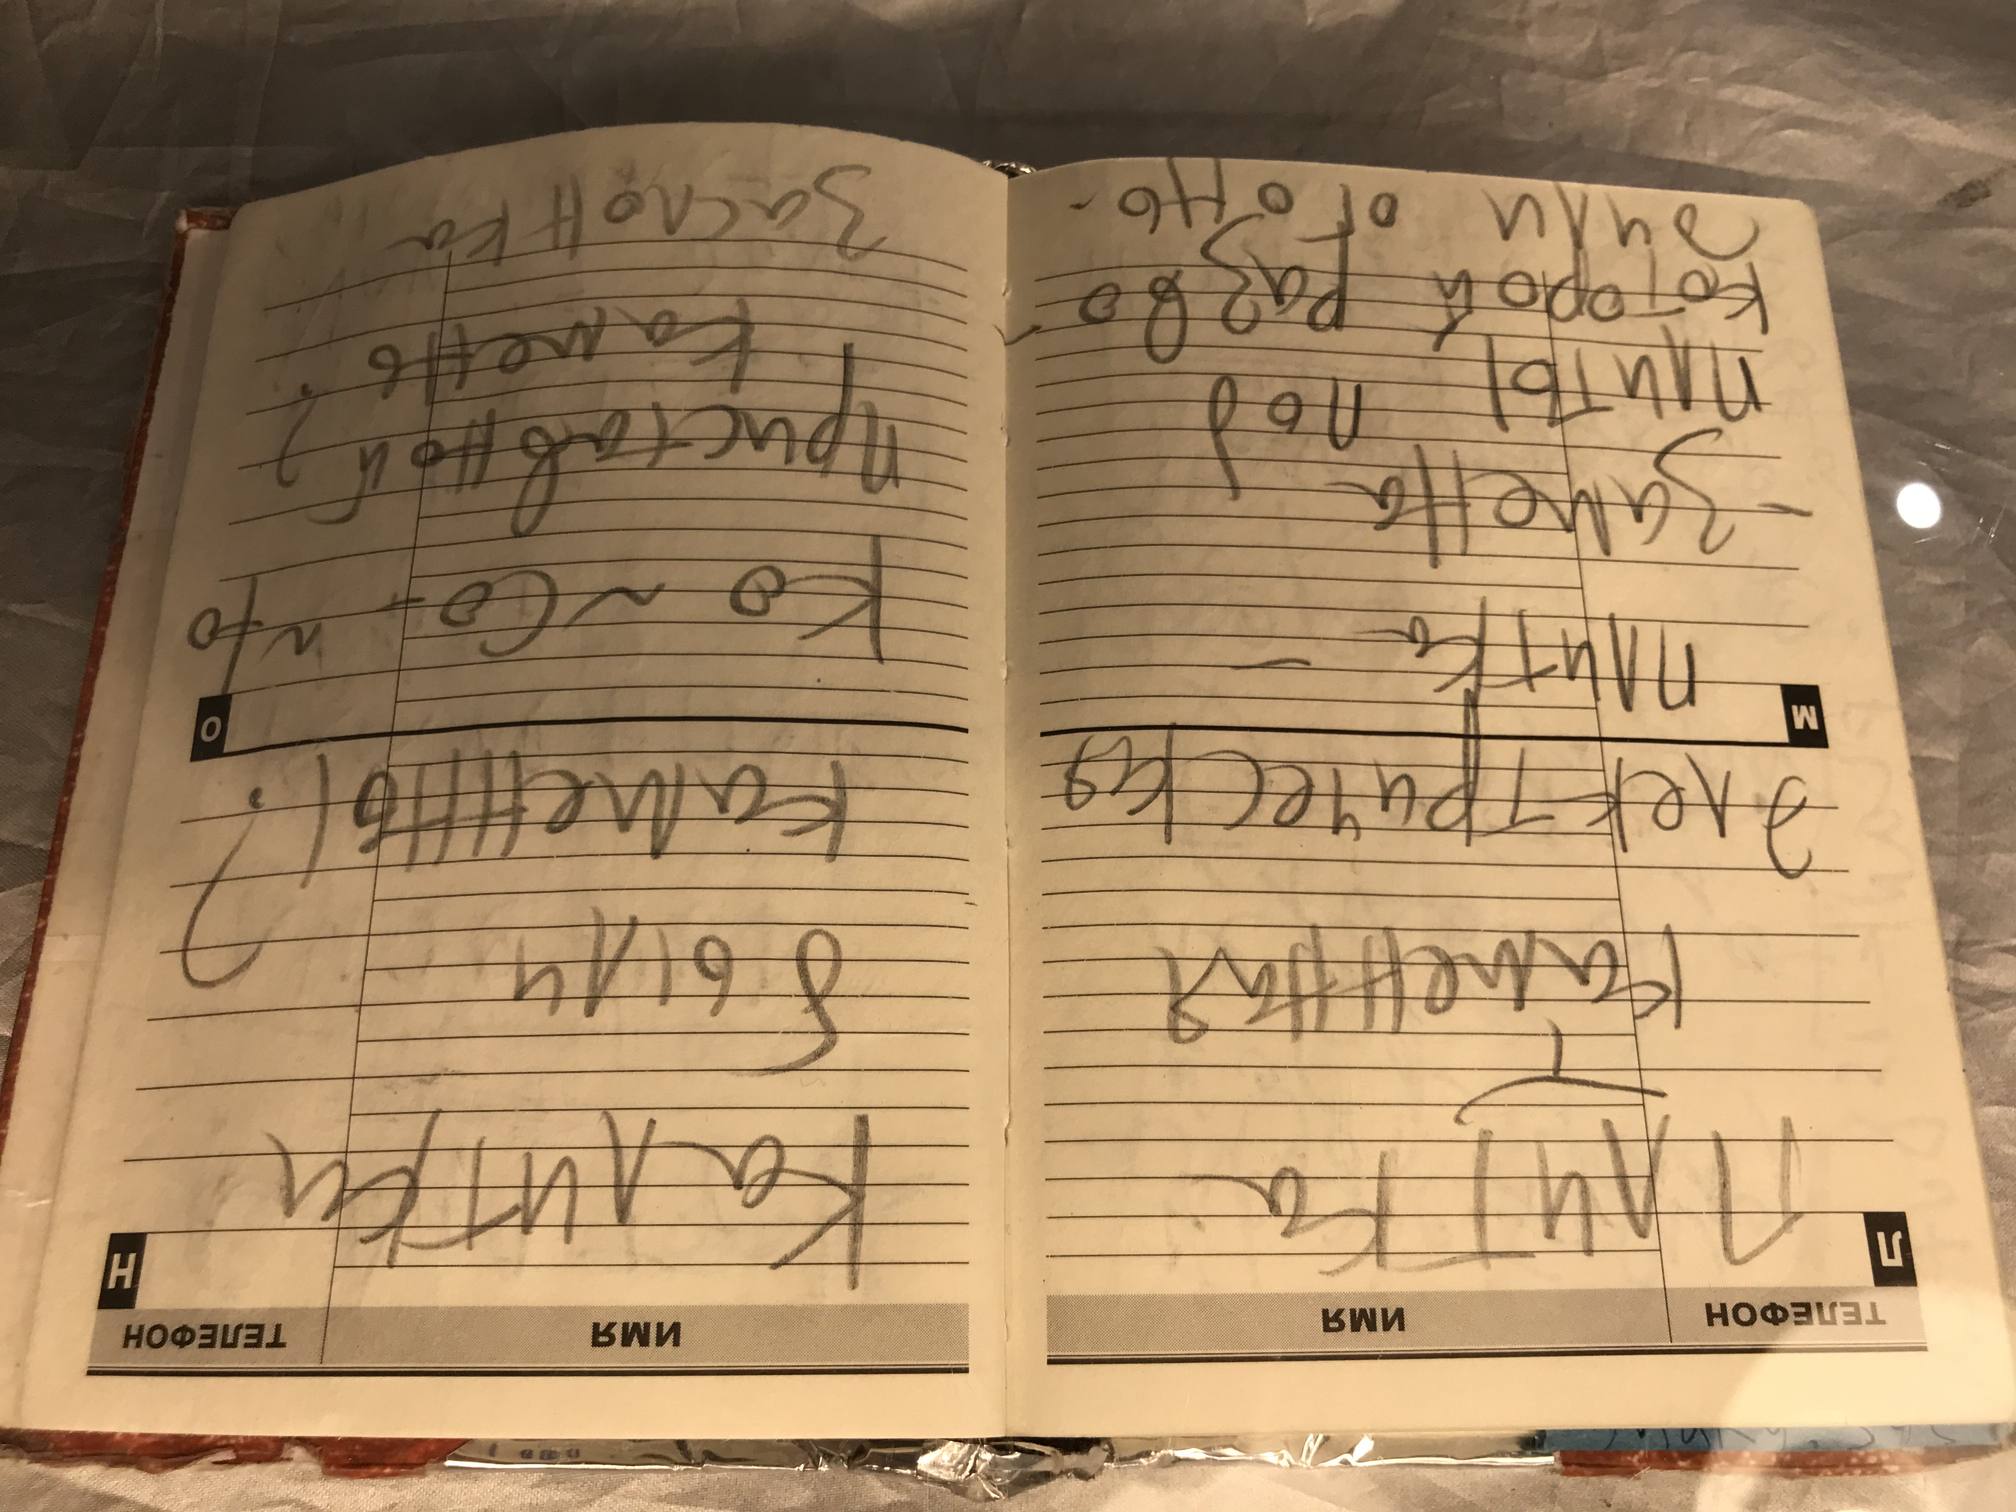 ТЕЛЕФОН ИМЯ
Л
Плитка
Каменная
Электрическая
М
плитка –
- Замена
плиты под
которой разво
дили огонь-
ИМЯ ТЕЛЕФОН
Н
Калитки
были
каменны?
О
Ко ~ Со -
приставной?
камень
Заслонка